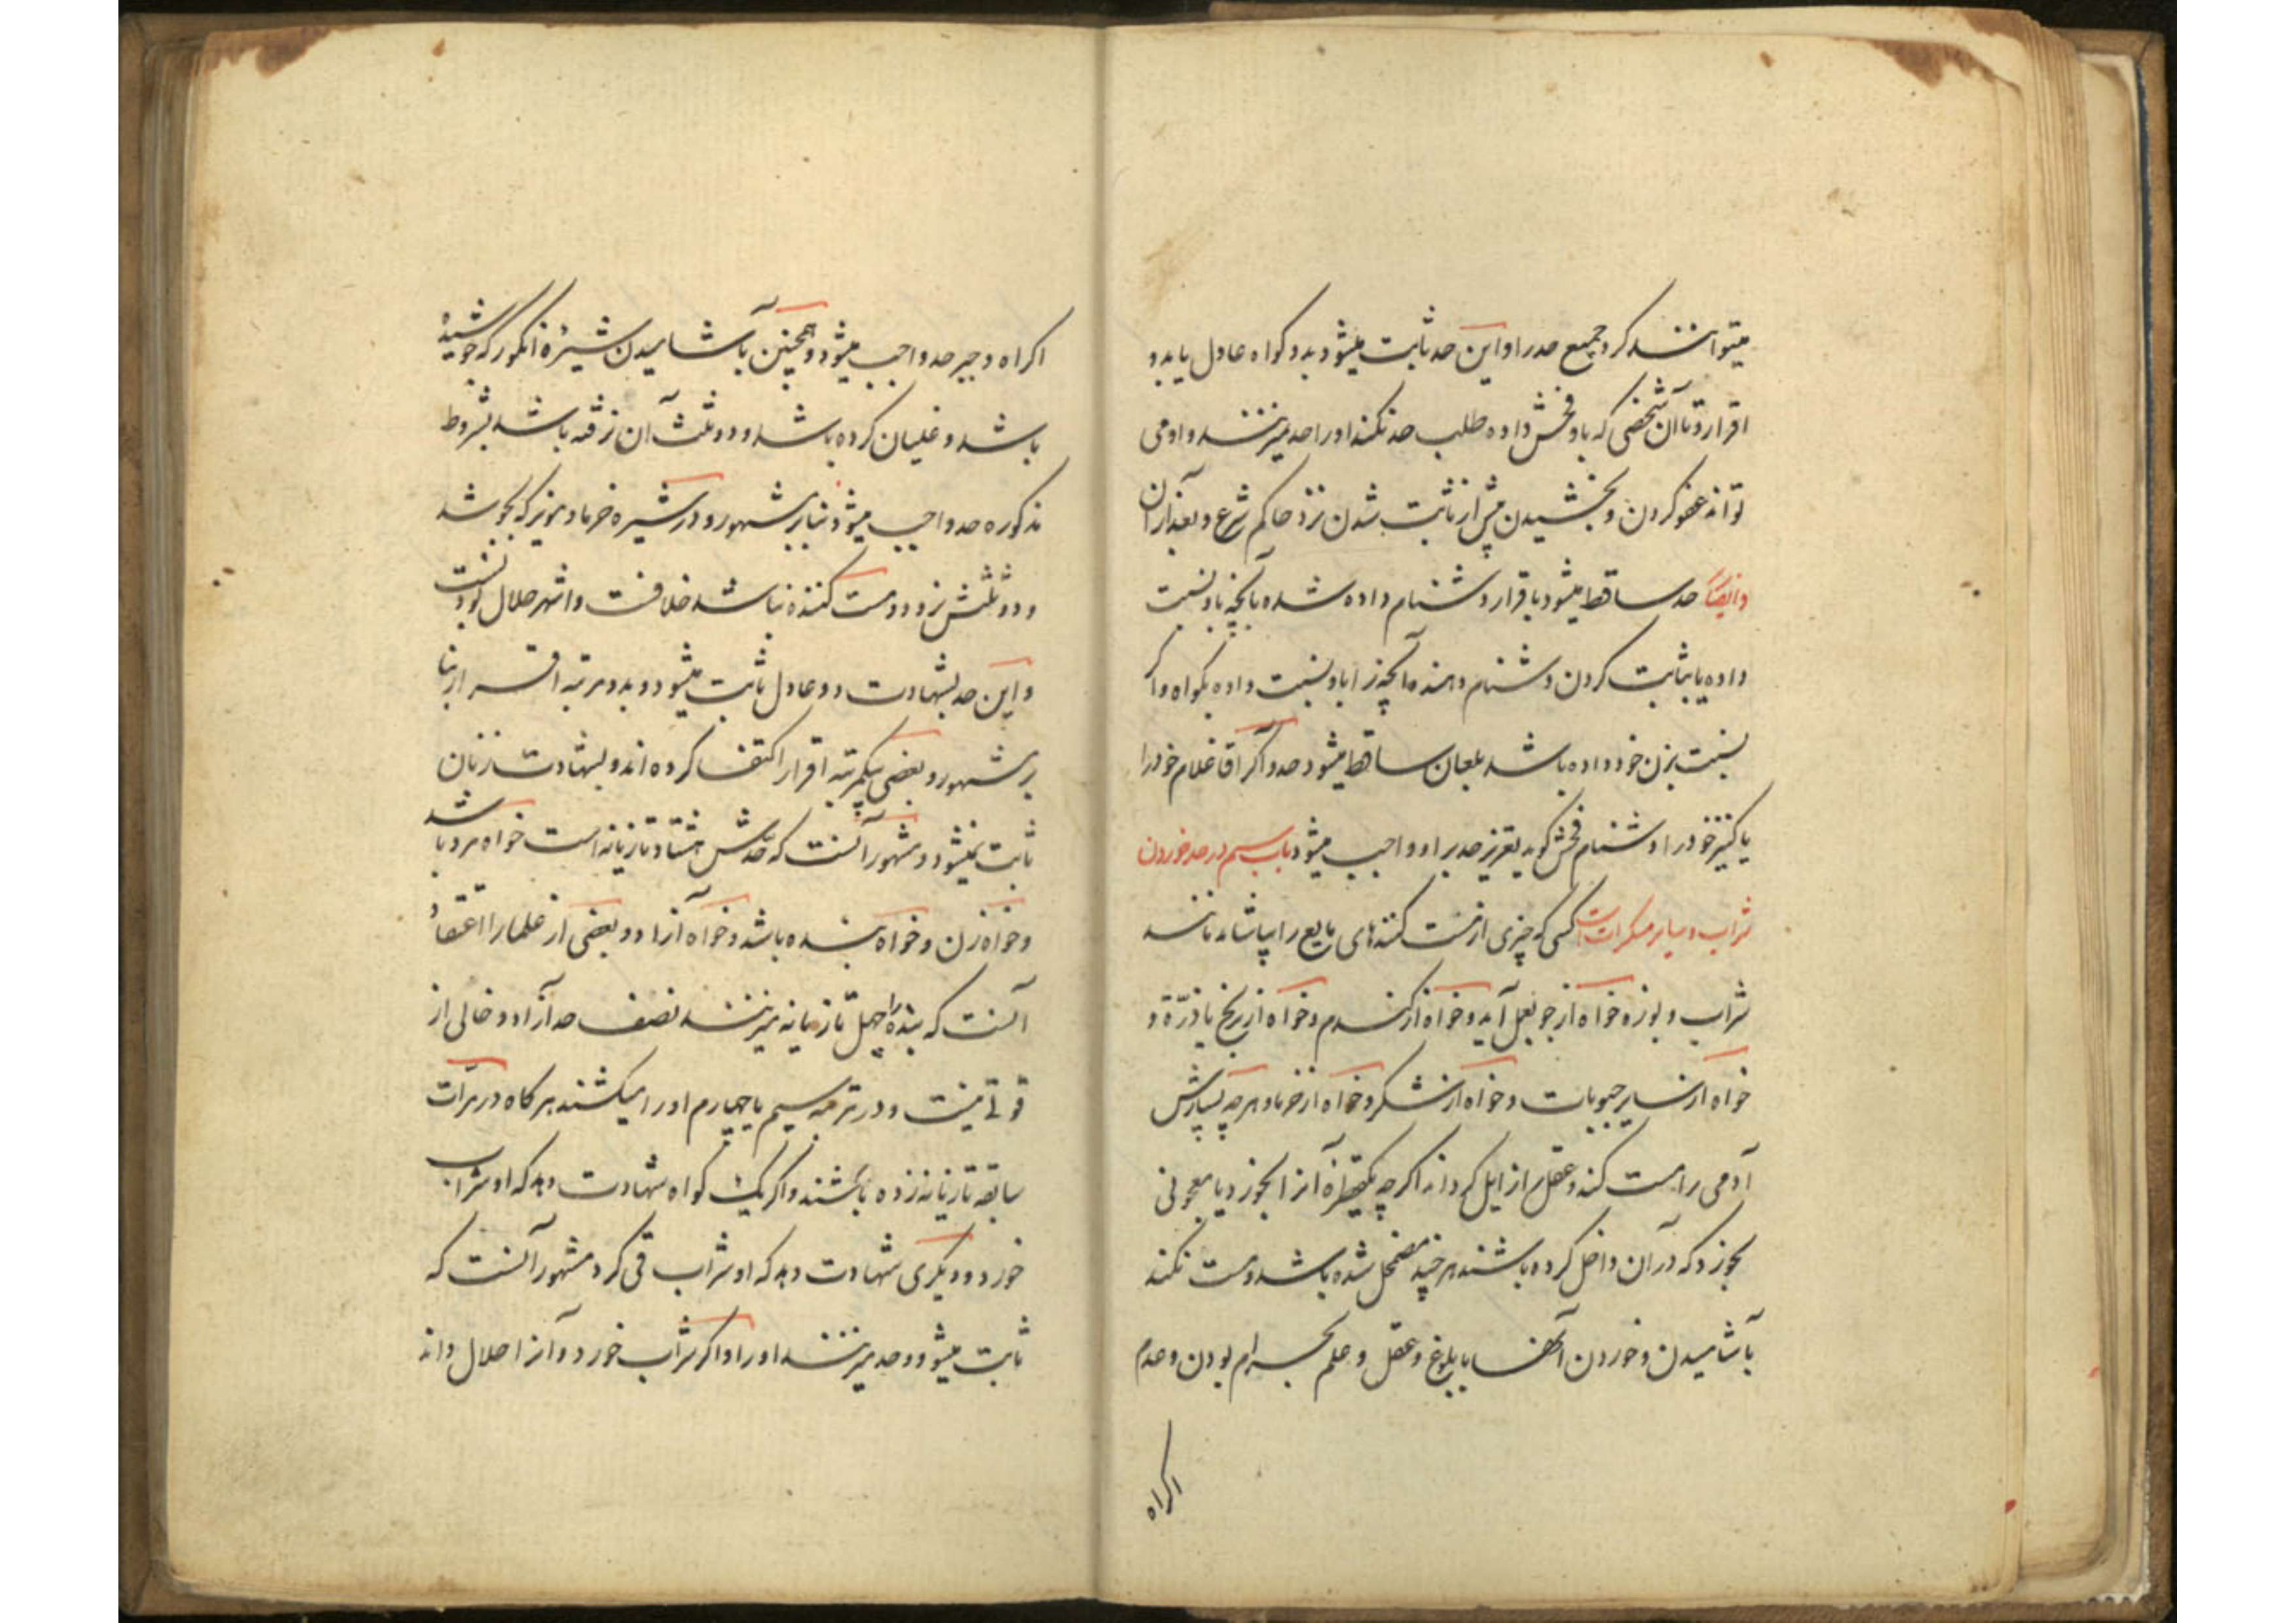 میتوانند کرد جمیع حد را و این حد ثابت میشود بدو کواه عادل یا بدو
اقرار و تا آن شخصی که باو فحش داده طلب حد نکند او را حد نمیزنند و او می
تواند عفو کردن و بخشیدن پیش از ثابت شدن نزد حاکم شرع و بعد از آن
وایضاً حد ساقط میشود باقرار دشنام داده شده بآنچه باو نسبت
داده یا بثابت کردن دشنام دهنده آنچه را باو نسبت داده بکواه و اکر
نسبت بزن خود داده باشد بلعان ساقط میشود حد و اکر آقا غلام خود را
یا کنیز خود را دشنام فحش کوید تعزیر حد بر او واجب میشود باب سیم در حد خوردن
شراب و سایر مسکرات است کسی که چیزی از مست کننده‌های مایع را بیاشامد مانند
شراب و بوزه خواه از جو بعمل آید و خواه از کندم و خواه از برنج یا ذرّة و
خواه از سایر حبوبات و خواه از شکر و خواه از خرما و هر چه بسیارش
آدمی را مست کند و عقل را زایل کرداند اکر چه یکقطره آنرا بخورد یا معجونی
بخورد که در آن داخل کرده باشند هر چند مضمحل شده باشد و مست نکند
بآشامیدن و خوردن آنها با بلوغ و عقل و علم بحرام بودن و عدم
اکراه
اکراه و جبر حد واجب میشود و همچنین بآشامیدن شیرۀ انکور که جوشیدۀ
باشد و غلیان کرده باشد و دو ثلث آن نرفته باشد بشروط
مذکوره حد واجب میشود بنابر مشهور و در شیره خرما و مویز که بجوشد
و دو ثلثش نرود و مست کننده نباشد خلافست و اشهر حلال بودنست
و این حد بشهادت دو عادل ثابت میشود و بدو مرتبه اقرار بنا
بر مشهور و بعضی بیکمرتبه اقرار اکتفا کرده اند و بشهادت زنان
ثابت نمیشود و مشهور آنست که حدّش هشتاد تازیانه است خواه مرد باشد
و خواه زن و خواه بنده باشد و خواه آزاد و بعضی از علما را اعتقاد
آنست که بنده را چهل تازیانه میزنند نصف حد آزاد و خالی از
قوتی نیست و در مرتبه سیم یا چهارم او را میکشند هر کاه در مرّات
سابقه تازیانه زده باشند و اکر یک کواه شهادت دهد که او شراب
خورد و دیکری شهادت دهد که او شراب قی کرد مشهور آنست که
ثابت میشود و حد میزنند او را و اکر شراب خورد و آنرا حلال داند